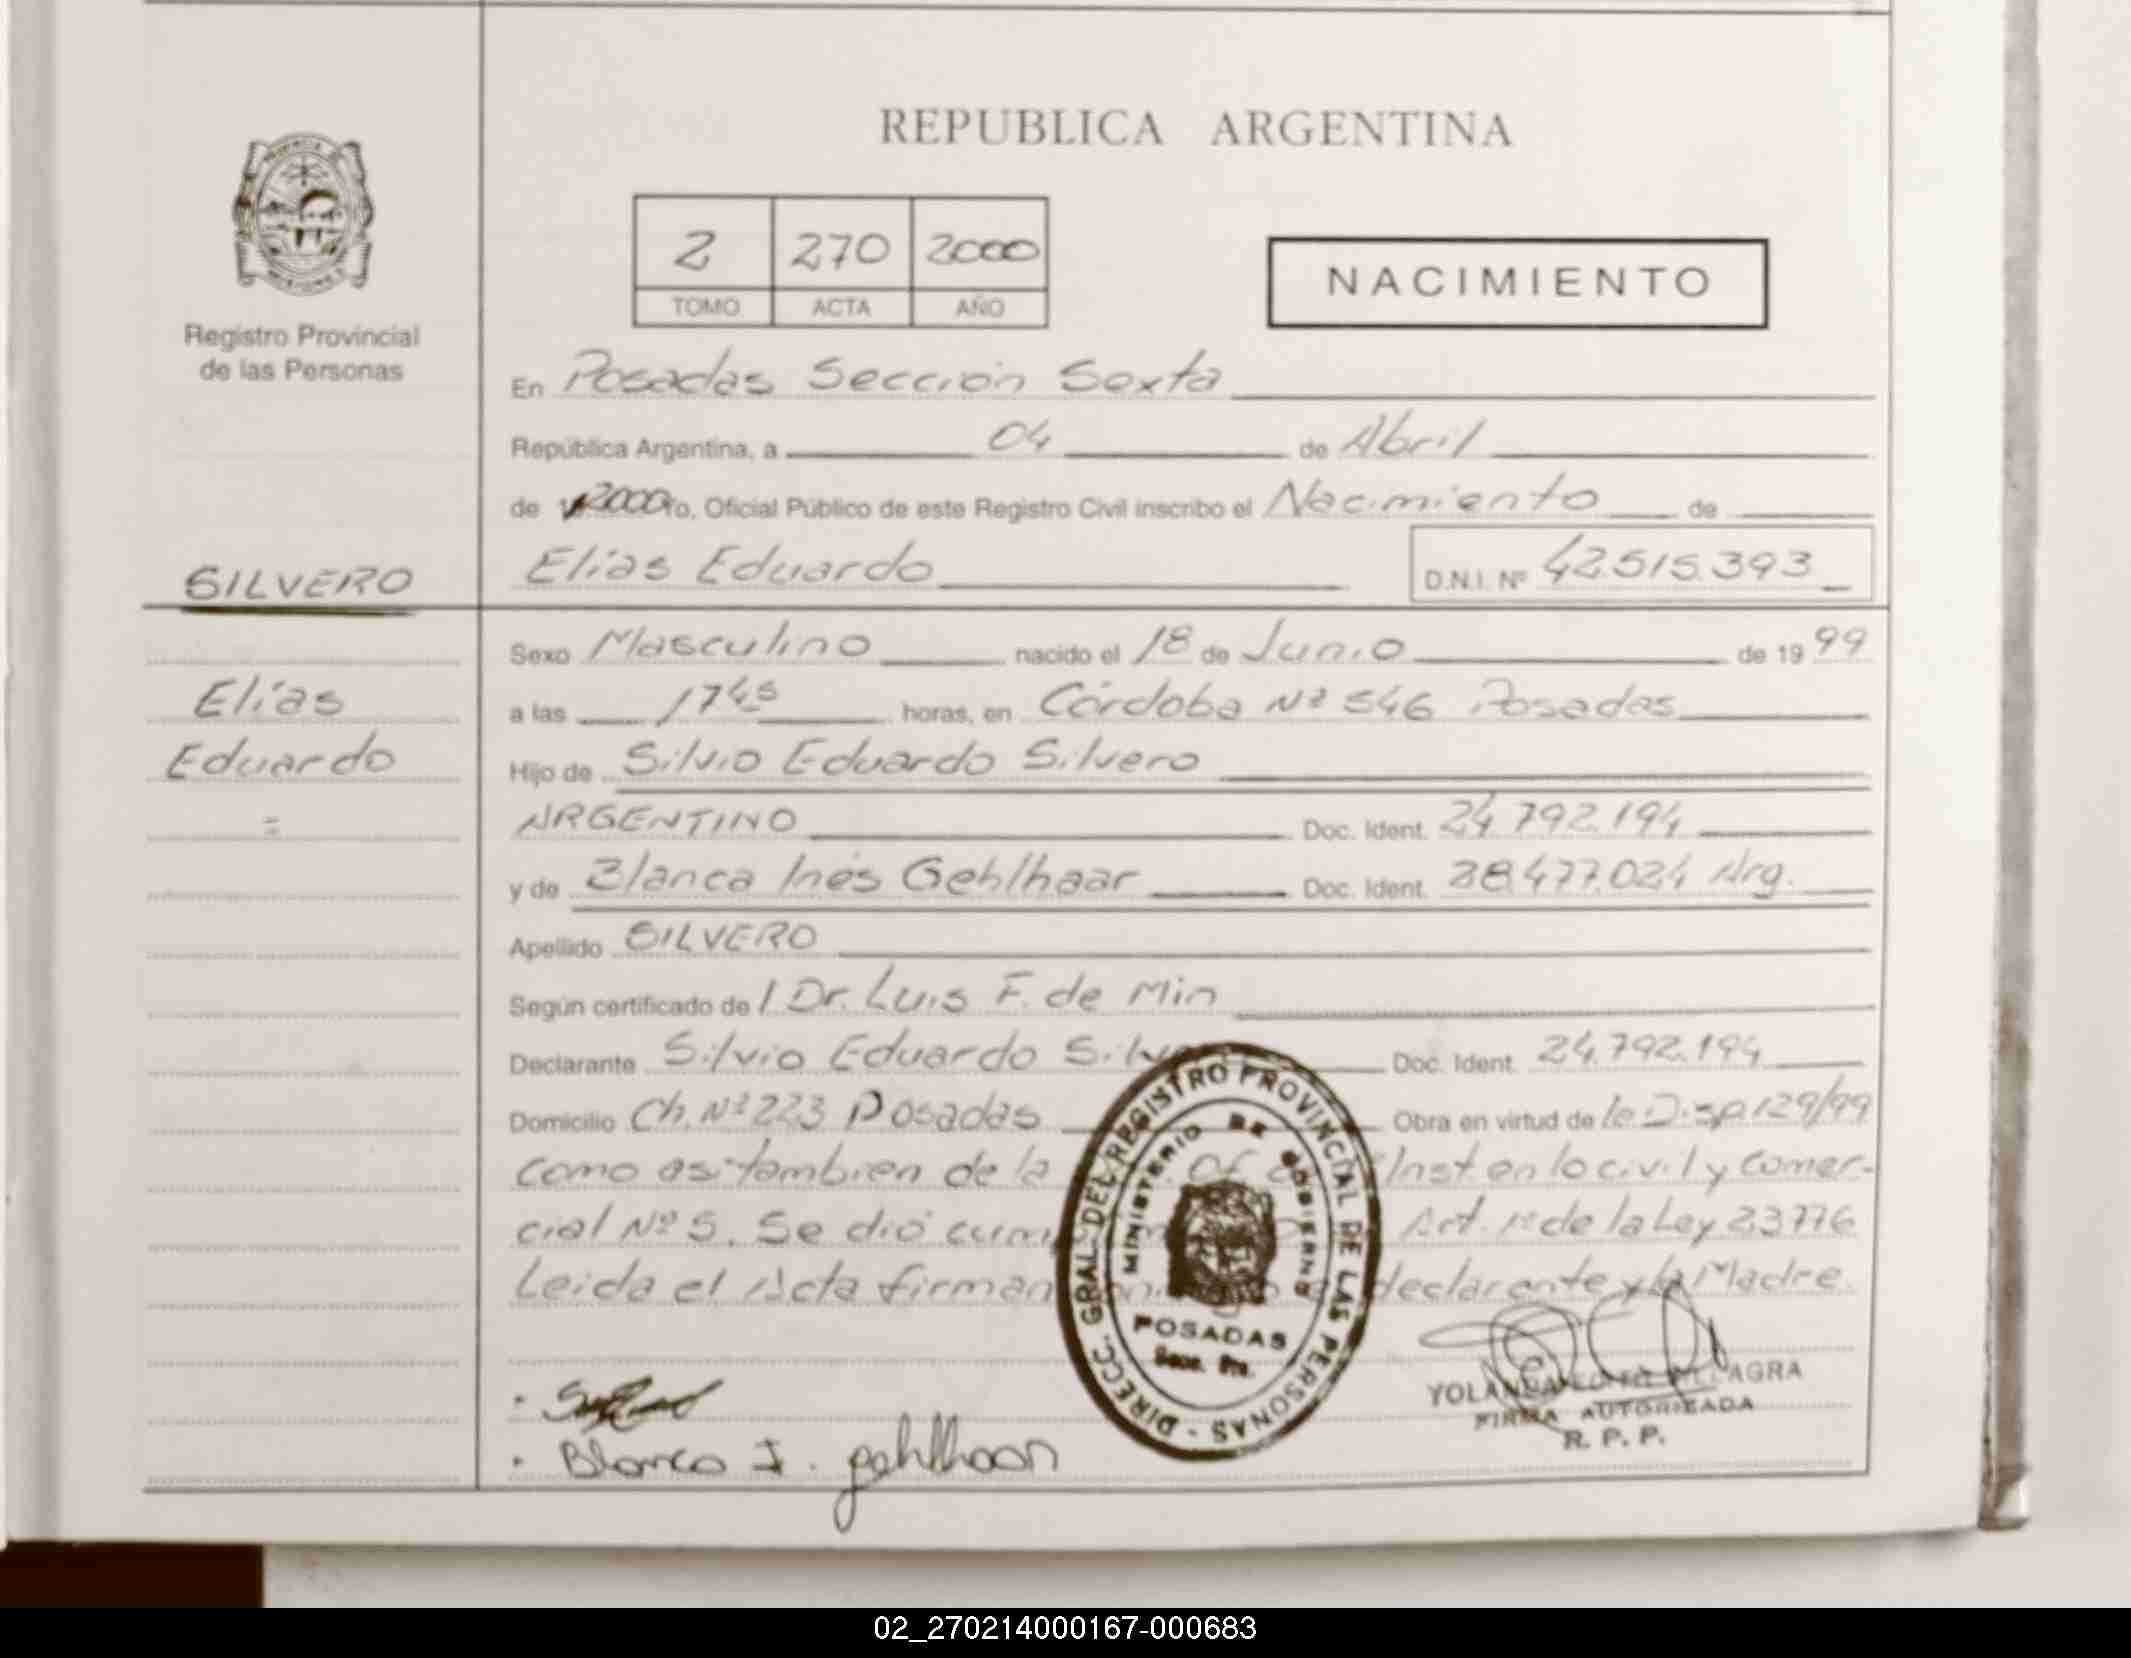 REPUBLICA ARGENTINA
2 270 2000
TOMO ACTA AÑO
NACIMIENTO
Registro Provincial
de las Personas
En Posadas Sección Sexta
República Argentina, a 04 de Abril
de 2000 Yo, Oficial Público de este Registro Civil inscribo el Nacimiento de
SILVERO
Elías Eduardo D.N.I. Nº 42.515.393
Sexo Masculino nacido el 18 de Junio de 1999
Elías
a las 17 45 horas, en Córdoba Nº 546 Posadas
Eduardo
Hijo de Silvio Eduardo Silvero
=
ARGENTINO Doc. Ident. 24.792.194
y de Blanca Inés Gehlhaar Doc. Ident. 28.477.024 Arg.
Apellido SILVERO
Según certificado de / Dr. Luis F. de Min
Declarante Silvio Eduardo Doc. Ident. 24.792.194
Domicilio Ch. Nº 223 Posadas Obra en virtud de la Disp. 129/99
como asi tambien de la Inst en lo civil y Comer-
cial Nº 5. Se dió Art. 1º de la Ley 23776
Leida el Acta firman declarante y la Madre.
DIRECC. GRAL. DEL REGISTRO PROVINCIAL DE LAS PERSONAS -
MINISTERIO DE GOBIERNO
POSADAS
Secc.
YOLANDA VILLAGRA
FIRMA AUTORIZADA
R. P. P.
Blanca I. Gehlhaar
02_270214000167-000683